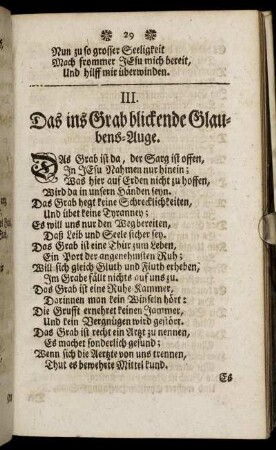 29
Nun zu so grosser Seeligkeit
Mach frommer JEsu mich bereit,
Und hilff mir überwinden.
III.
Das ins Grab blickende Glau-
bens-Auge.
DAs Grab ist da, der Sarg ist offen,
In JEsu Nahmen nur hinein;
Was hier auf Erden nicht zu hoffen,
Wird da in unsern Händen seyn.
Das Grab hegt keine Schrecklichkeiten,
Und übet keine Tyranney;
Es will uns nur den Weg bereiten,
Daß Leib und Seele sicher sey.
Das Grab ist eine Thür zum Leben,
Ein Port der angenehmsten Ruh;
Will sich gleich Gluth und Fluth erheben,
Im Grabe fällt nichts auf uns zu.
Das Grab ist eine Ruhe-Kammer,
Darinnen man kein Winseln hört:
Die Grufft ernehret keinen Jammer,
Und kein Vergnügen wird gestört.
Das Grab ist recht ein Artzt zu nennen,
Es machet sonderlich gesund;
Wenn sich die Aertzte von uns trennen,
Thut es bewehrte Mittel kund.
Es